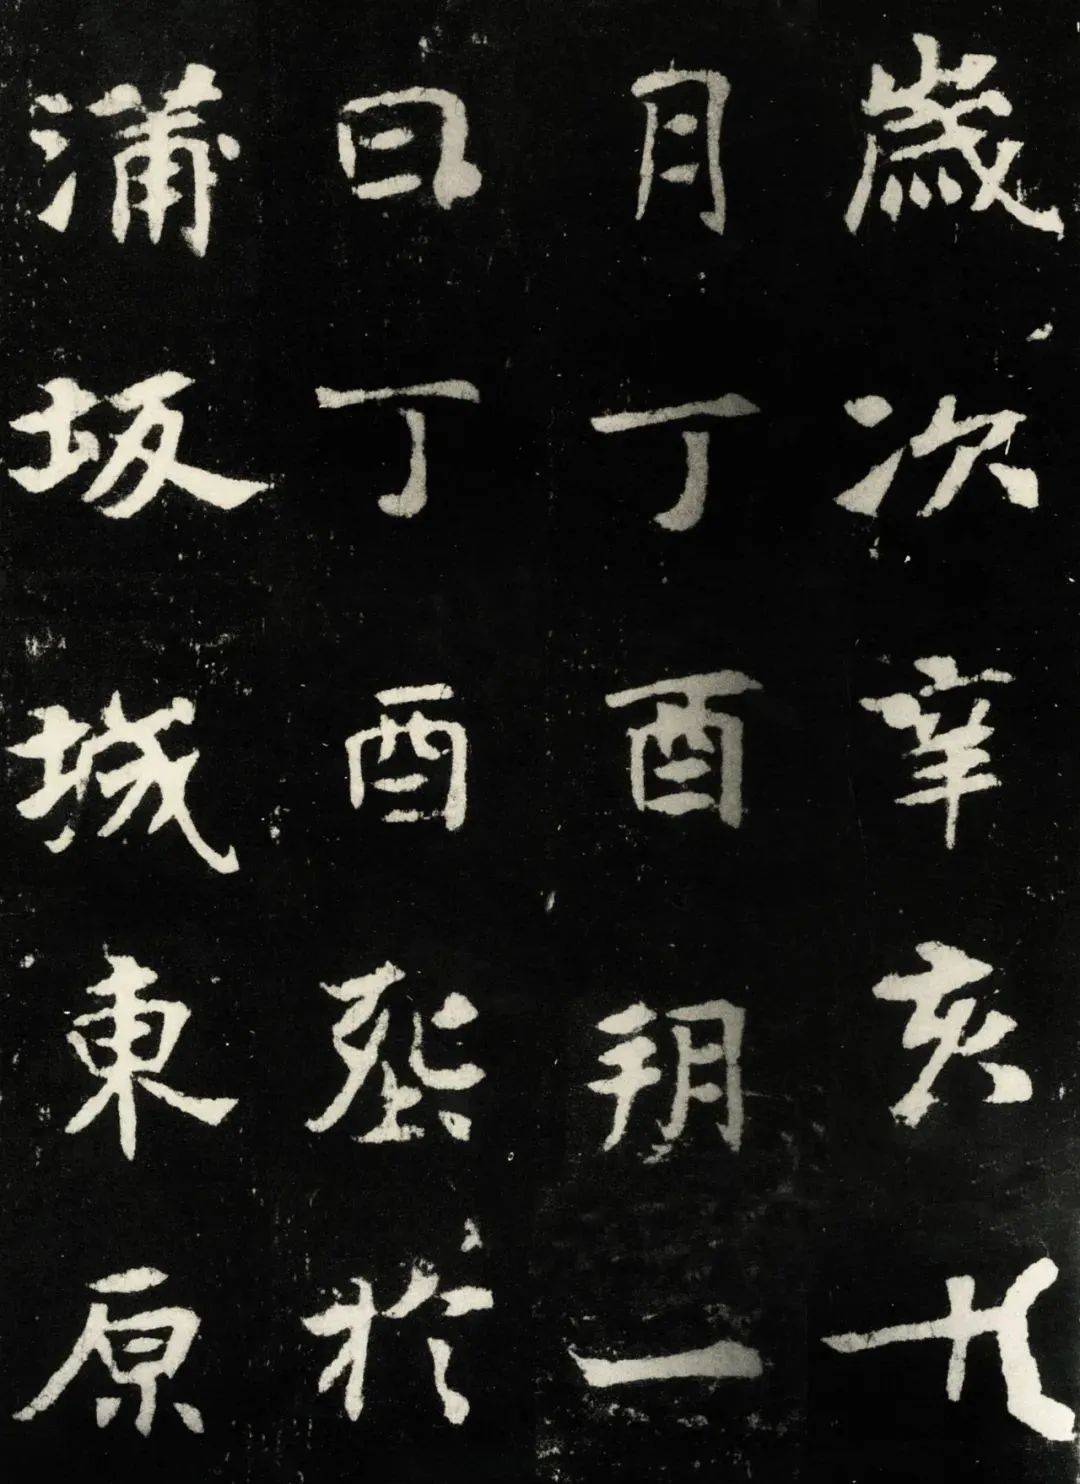 歲次辛亥十
月丁酉朔一
日丁酉葬於
蒲坂城東原